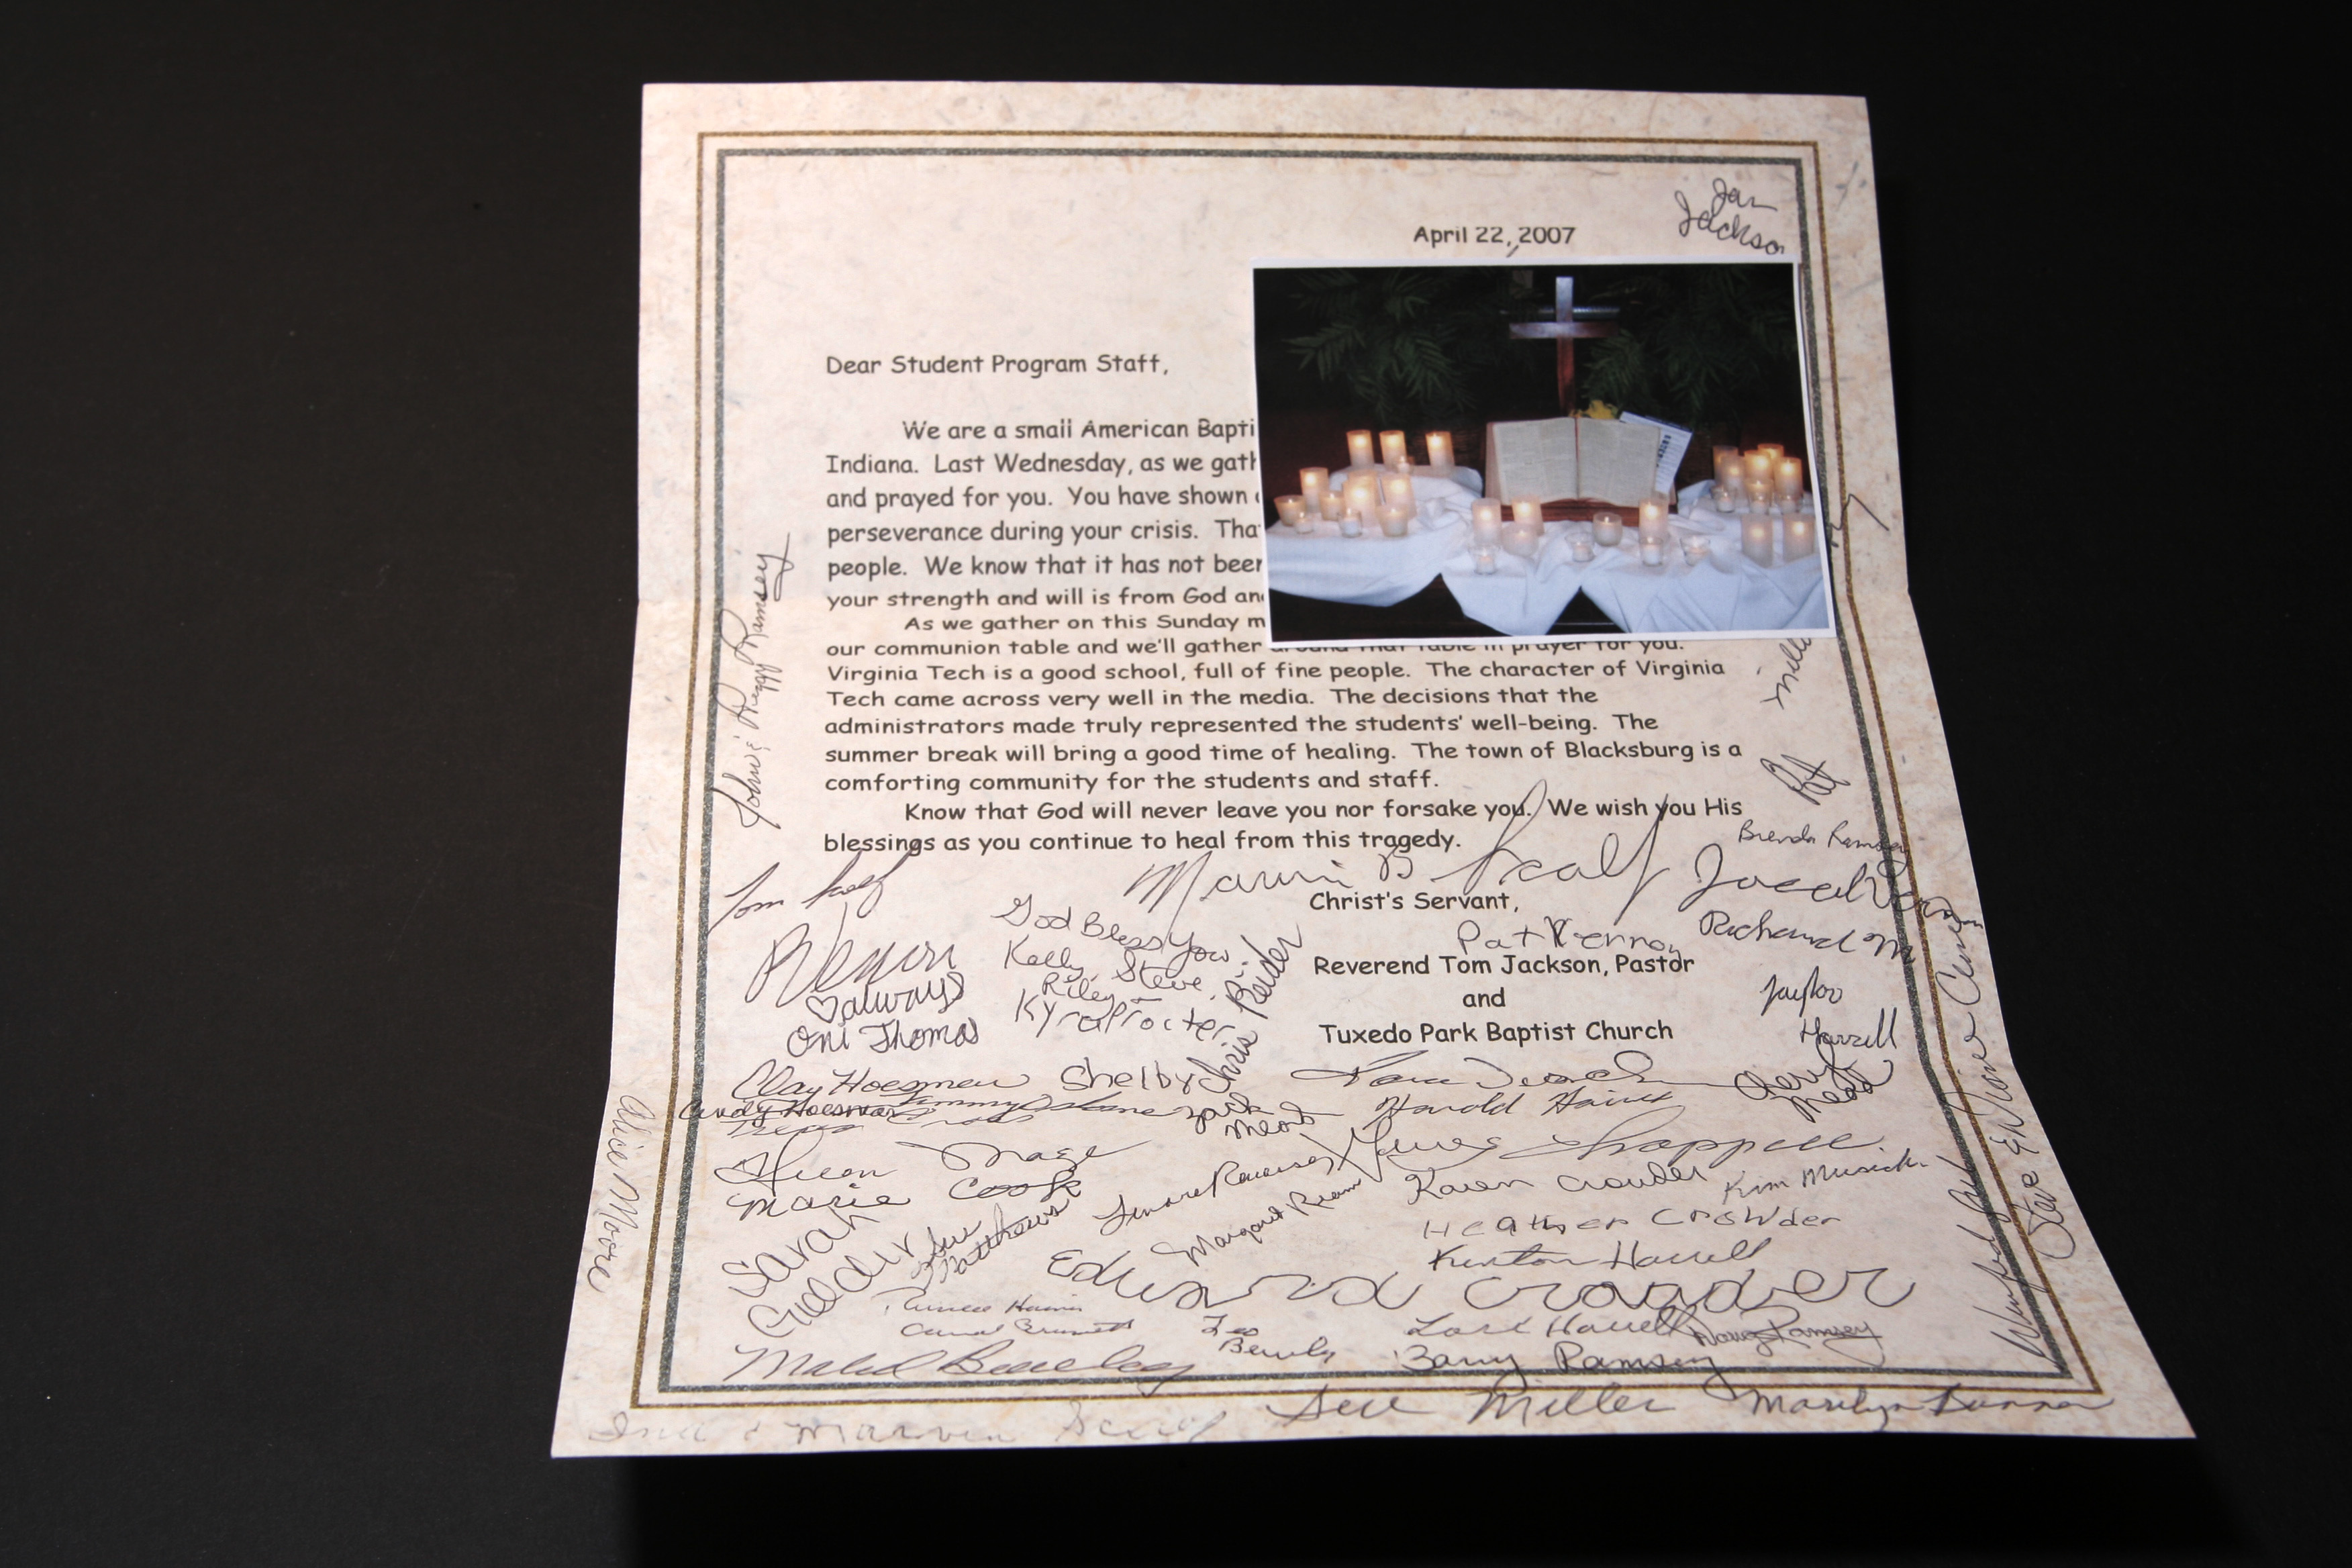 April 22, 2007
Jan
Jackson
Dear Student Program Staff,
We are a small American Bapti
Indiana. Last Wednesday, as we gath
and prayed for you. You have shown
perseverance during your crisis. Tha
people. We know that it has not been
your strength and will is from God an
As we gather on this Sunday m
our communion table and we'll gather around that table in prayer for you.
Virginia Tech is a good school, full of fine people. The character of Virginia
Tech came across very well in the media. The decisions that the
administrators made truly represented the students' well-being. The
summer break will bring a good time of healing. The town of Blacksburg is a
comforting community for the students and staff.
Know that God will never leave you nor forsake you. We wish you His
blessings as you continue to heal from this tragedy.
John & Peggy Ramsey
Pat
Brenda Ramsey
Tom
Marvin B
Christ's Servant,
God Bless You
Kelly Steve
Riley
Kyra Procter
Chris Reider
Pat Vernon
Richard M
Reverend Tom Jackson, Pastor
and
Tuxedo Park Baptist Church
♡always
Oni Thomas
Taylor
Harrell
Clay Hoesman
Shelby
Cindy Hoesman
Zach
Mead
Harold
Cheryl
Mead
Alice Moore
Marie Cook
Karen Crowder
Kim Musick
Sarah
Guelder
Sue
Matthews
Margaret Ream
Heather Crowder
Kenton Harrell
Edward Crowder
Steve & Diane
Leo
Beverly
Lori Harrell
Doug Ramsey
Barry Ramsey
Ina & Marvin
Sue Miller
Marilyn